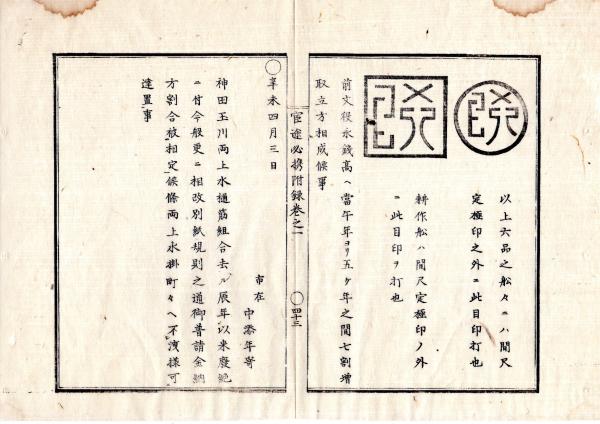 以上六品之船々ニハ間尺
定極印之外ニ此目印打也
耕作船ハ間尺定極印ノ外
ニ此目印ヲ打也
前文役永錢高ヘ當午年ヨリ五ケ年之間七割増
取立方相成候事
官途必携附録巻之一
○四十三
○辛未四月三日
市在
中添年寄
神田玉川両上水樋筋組合去ル辰年以来廢絶
ニ付今般更ニ相改別紙規則之通御普請金納
方割合被相定候條両上水掛町々ヘ不洩様可
達置事